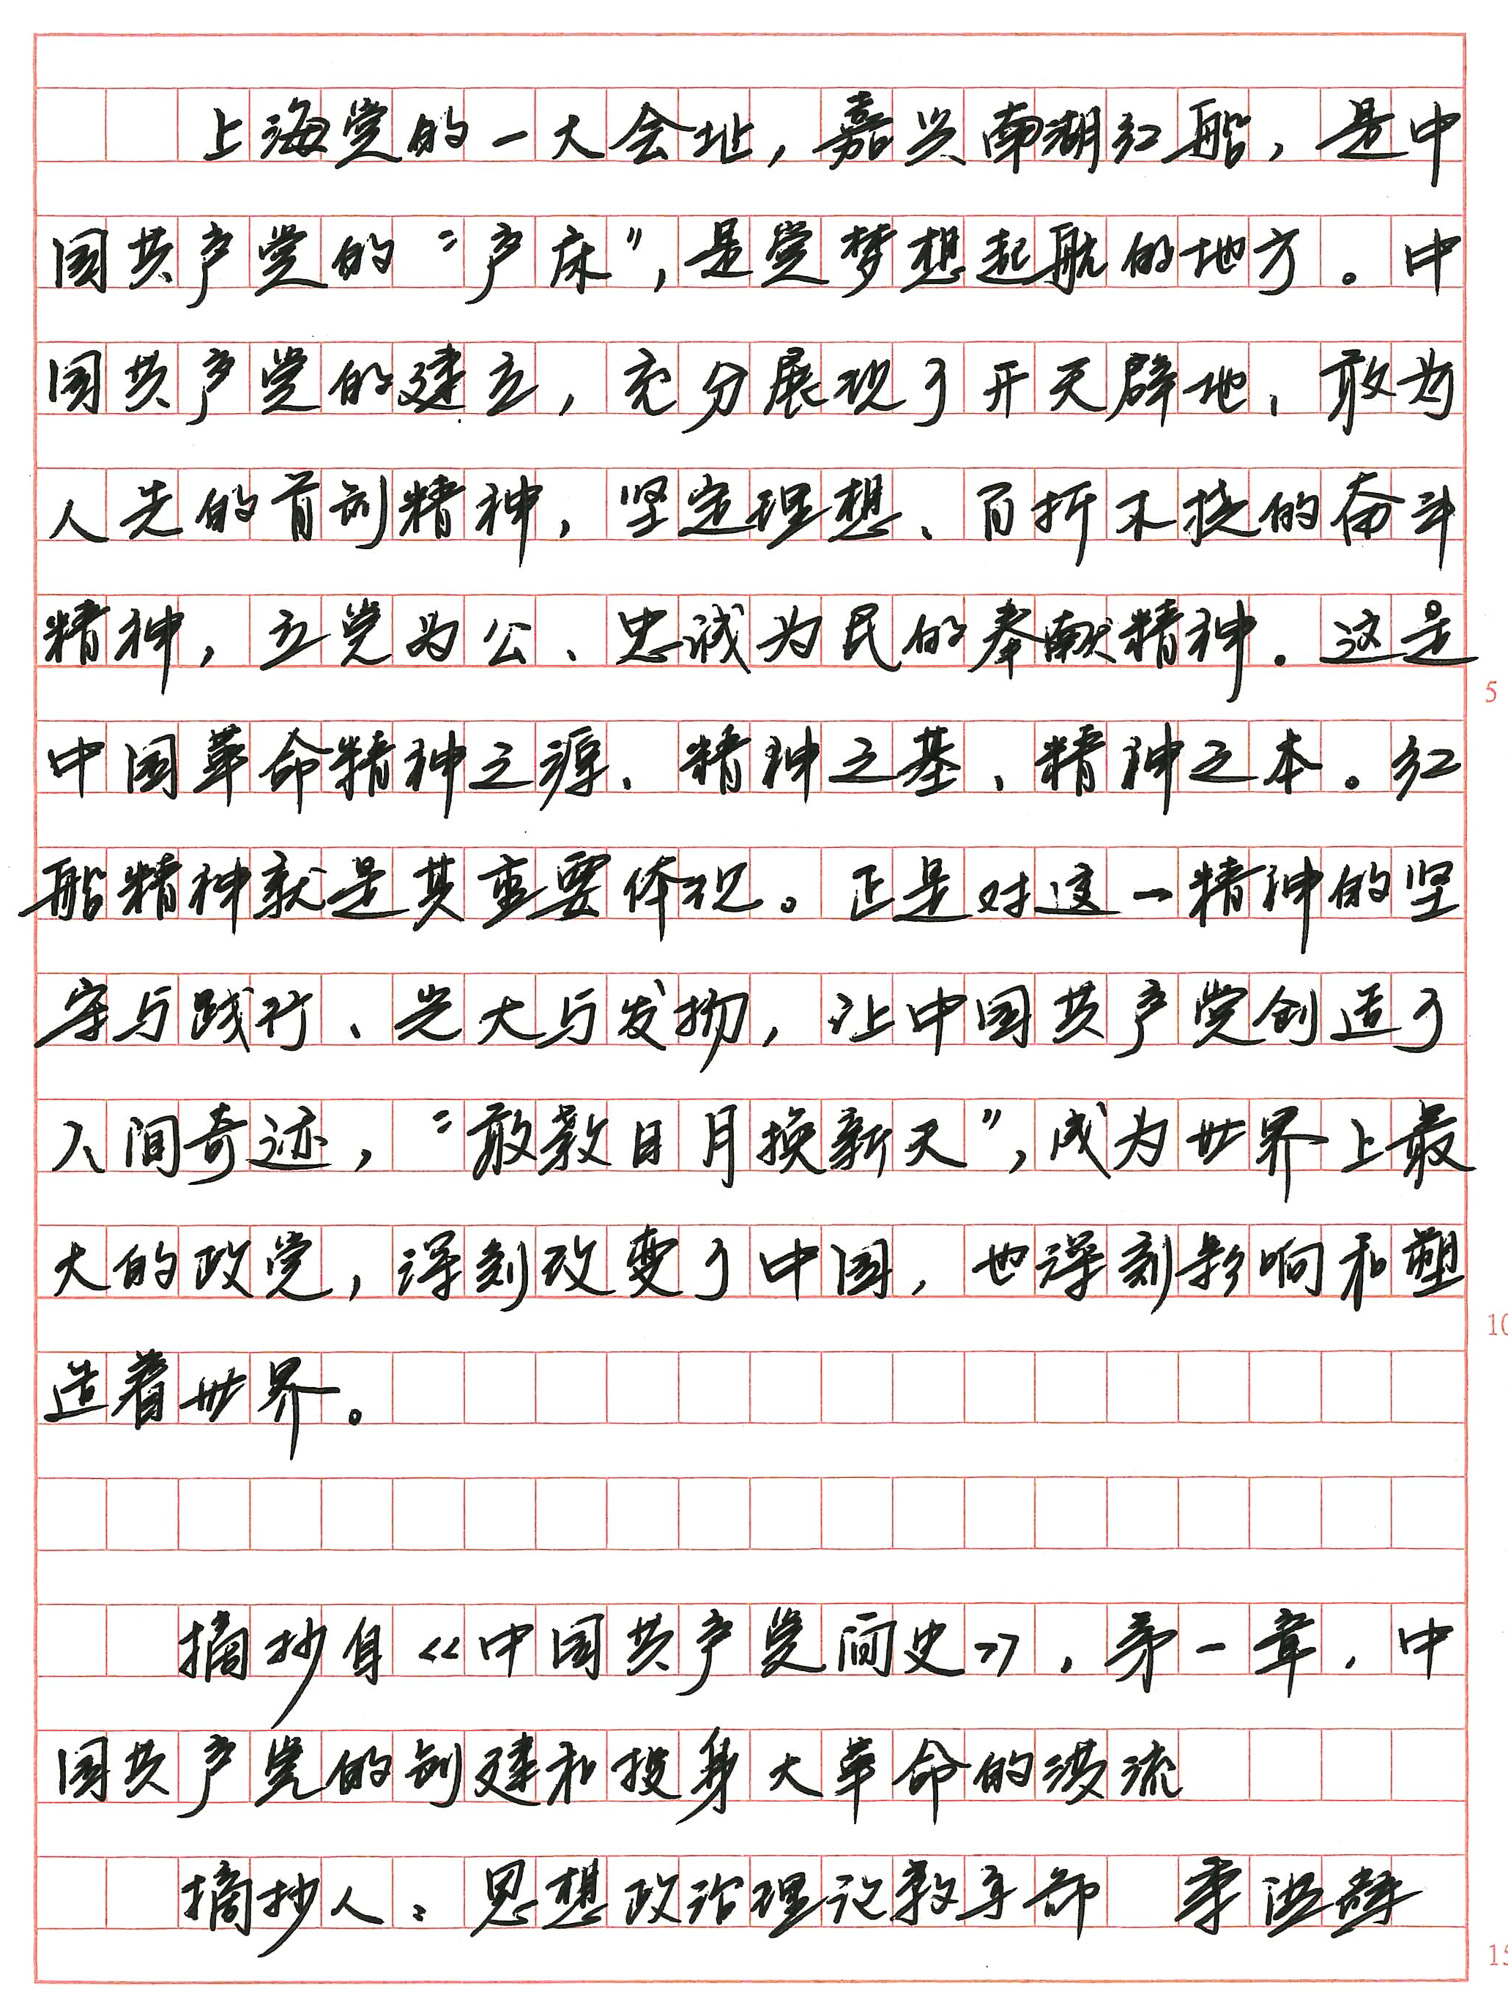 上海党的一大会址，嘉兴南湖红船，是中
国共产党的“产床”，是党梦想起航的地方。中
国共产党的建立，充分展现了开天辟地、敢为
人先的首创精神，坚定理想、百折不挠的奋斗
精神，立党为公、忠诚为民的奉献精神。这是
5
中国革命精神之源、精神之基、精神之本。红
船精神就是其重要体现。正是对这一精神的坚
守与践行、光大与发扬，让中国共产党创造了
人间奇迹，“敢教日月换新天”，成为世界上最
大的政党，深刻改变了中国，也深刻影响和塑
10
造着世界。
摘抄自《中国共产党简史》，第一章，中
国共产党的创建和投身大革命的洪流
摘抄人：思想政治理论教学部 李洪
15